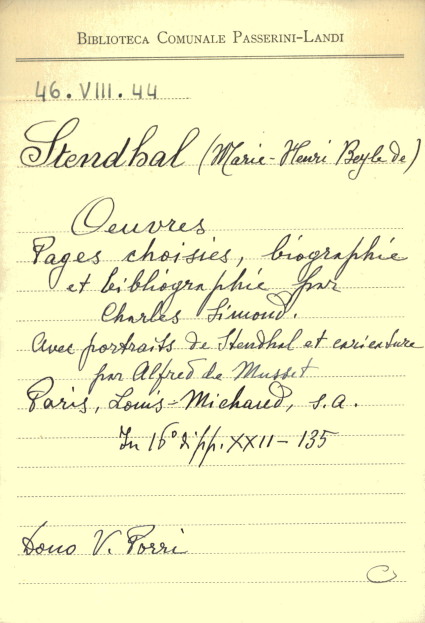 BIBLIOTECA COMUNALE PASSERINI-LANDI
46. VIII. 44
Stendhal (Marie-Henri Beyle de)
Oeuvres
Pages choisies, biographie
et bibliographie par
Charles Simond.
Avec portraits de Stendhal et caricature
par Alfred de Musset
Paris, Louis-Michaud, s.a.
In 16° di pp. XXII - 135
Dono V. Porri
C